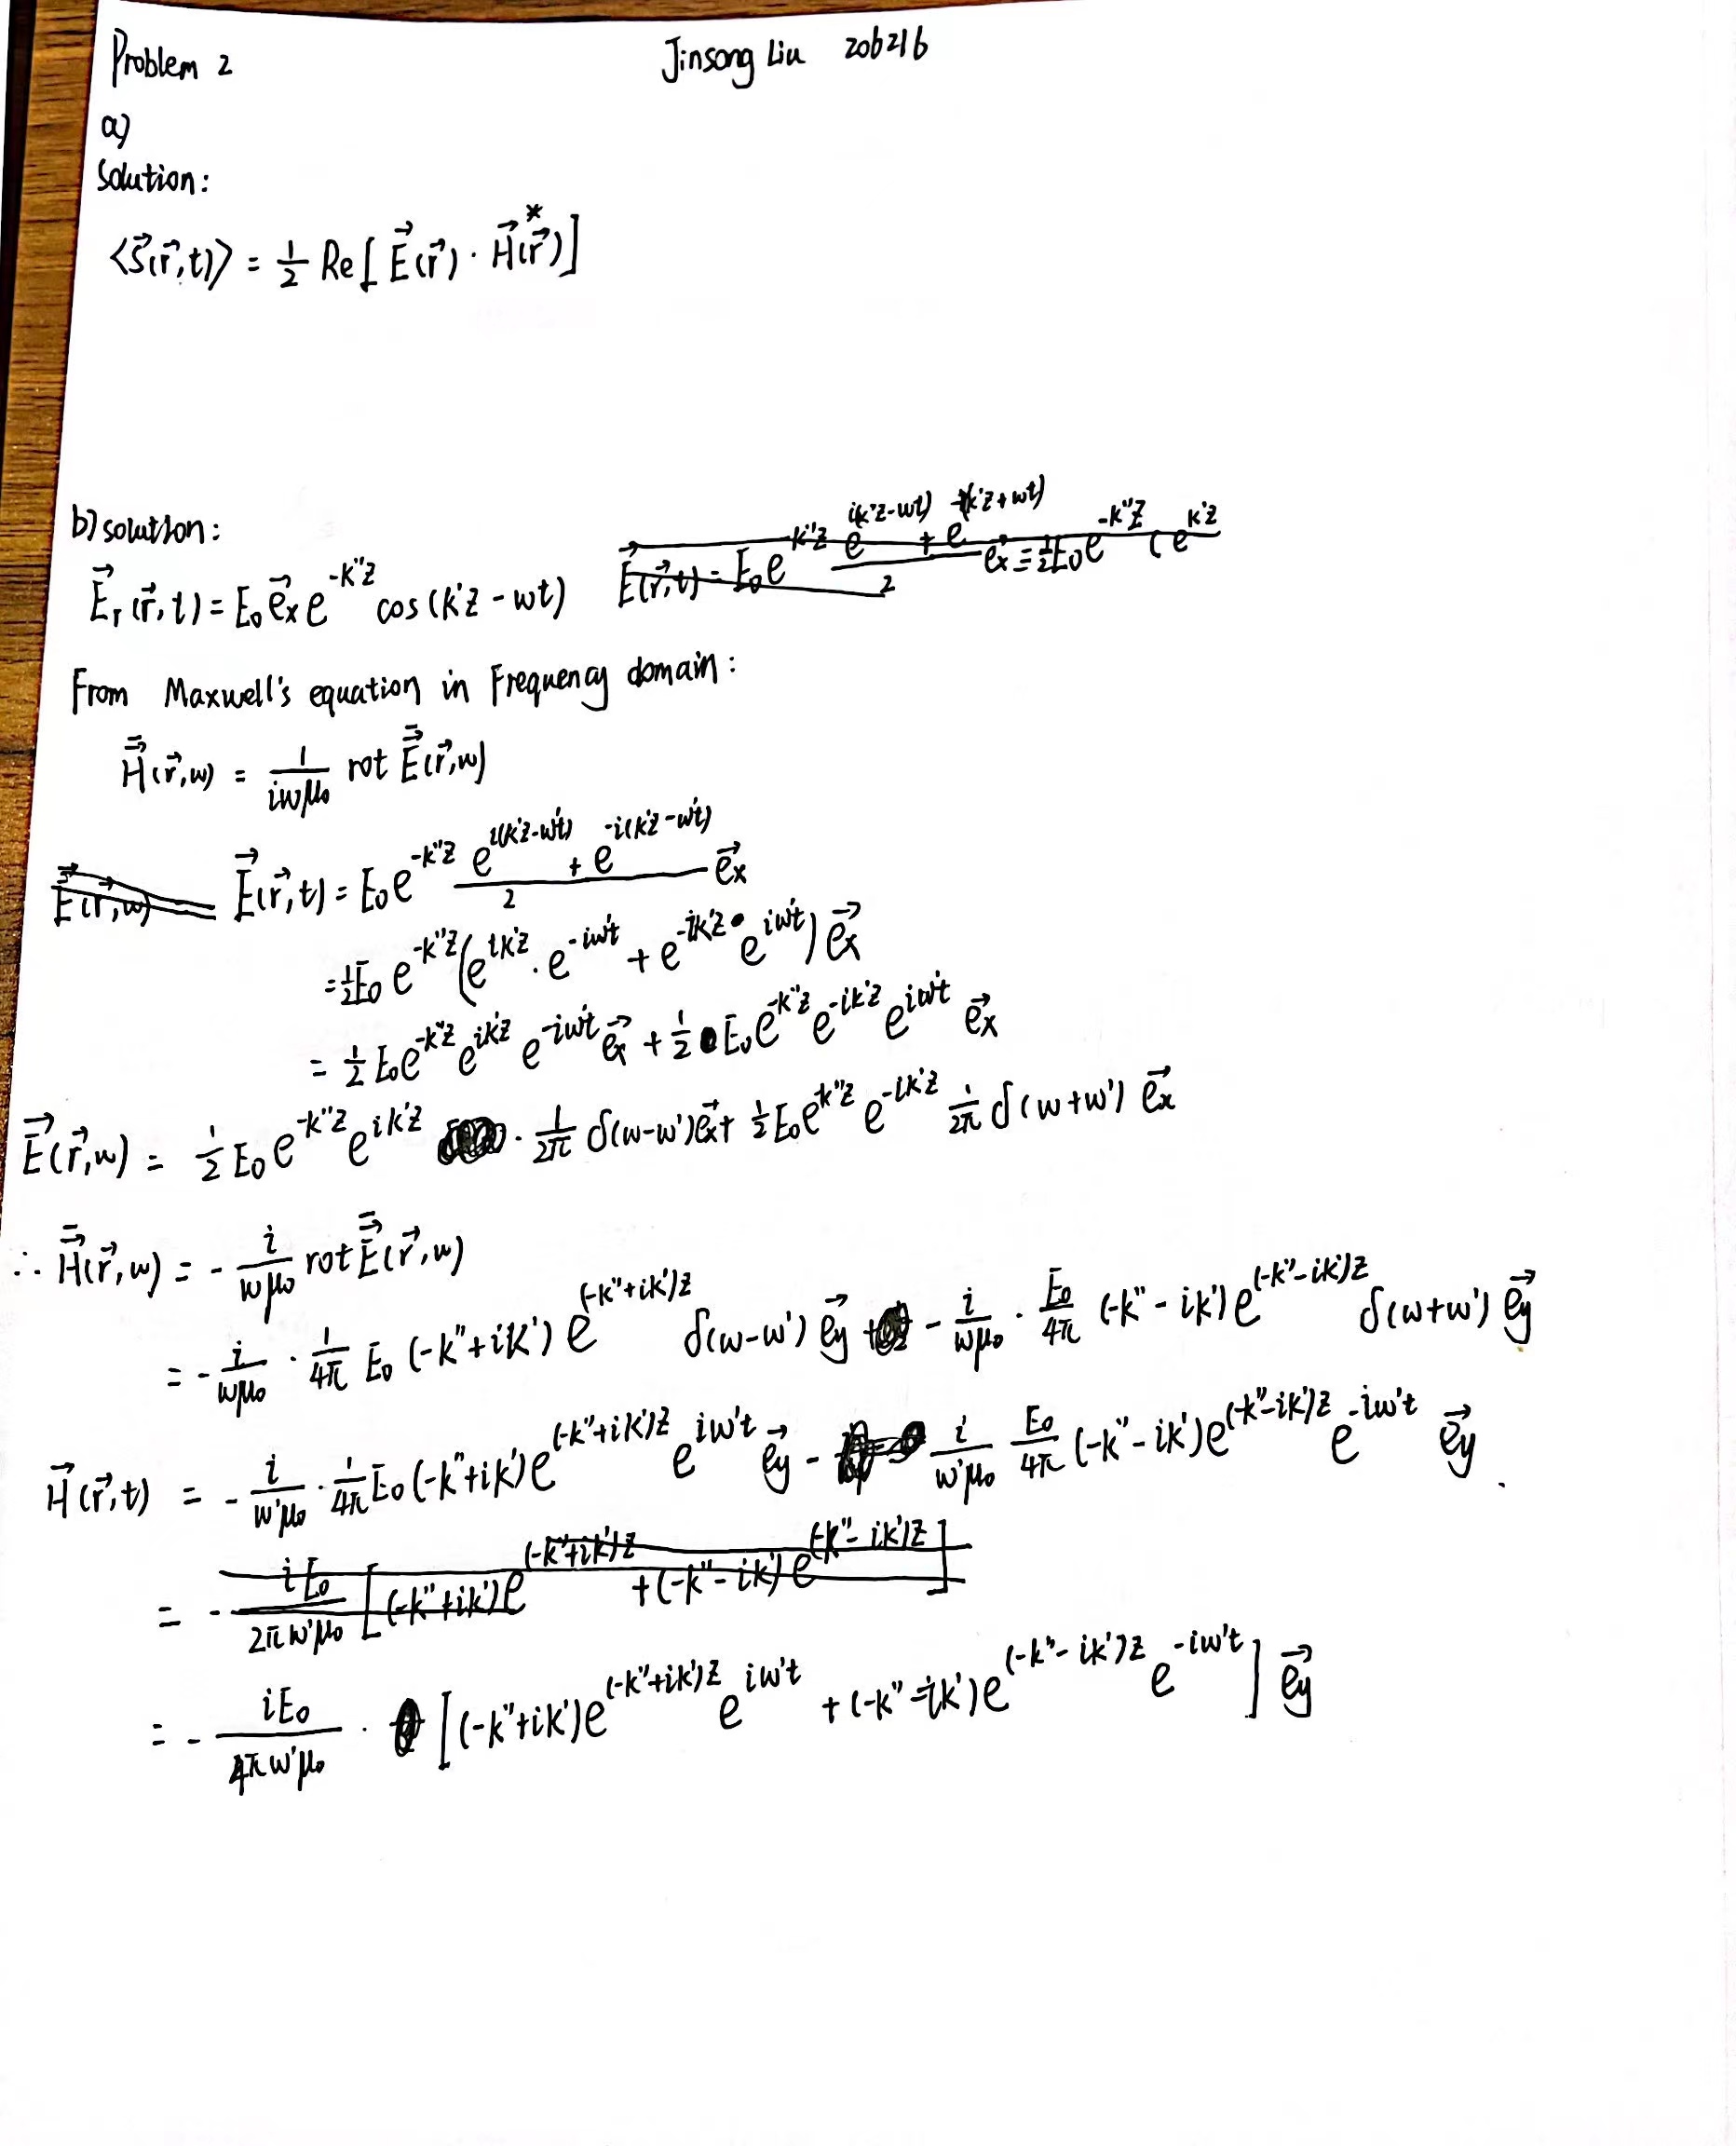 Problem 2 Jinsong Liu 206216
a)
Solution:
<S⃗(r⃗,t)> = 1/2 Re[E⃗(r⃗) · H⃗*(r⃗)]
b) solution:
E⃗ᵣ(r⃗,t) = E₀ e⃗ₓ e^(-k''z) cos(k'z - wt)
From Maxwell's equation in Frequency domain:
H̿⃗(r⃗,w) = 1/(iwμ₀) rot E̿⃗(r⃗,w)
E⃗(r⃗,t) = E₀ e^(-k''z) (e^(i(k'z-w't)) + e^(-i(k'z-w't)))/2 e⃗ₓ
= 1/2 E₀ e^(-k''z) (e^(ik'z) · e^(-iw't) + e^(-ik'z) · e^(iw't)) e⃗ₓ
= 1/2 E₀ e^(-k''z) e^(ik'z) e^(-iw't) e⃗ₓ + 1/2 E₀ e^(-k''z) e^(-ik'z) e^(iw't) e⃗ₓ
E⃗(r⃗,w) = 1/2 E₀ e^(-k''z) e^(ik'z) · 1/(2π) δ(w-w') e⃗ₓ + 1/2 E₀ e^(-k''z) e^(-ik'z) 1/(2π) δ(w+w') e⃗ₓ
∴ H̿⃗(r⃗,w) = - i/(wμ₀) rot E̿⃗(r⃗,w)
= - i/(wμ₀) · 1/(4π) E₀ (-k''+ik') e^((-k''+ik')z) δ(w-w') e⃗y - i/(wμ₀) · E₀/(4π) (-k''-ik') e^((-k''-ik')z) δ(w+w') e⃗y
H⃗(r⃗,t) = - i/(w'μ₀) · 1/(4π) E₀ (-k''+ik') e^((-k''+ik')z) e^(iw't) e⃗y - i/(w'μ₀) E₀/(4π) (-k''-ik') e^((-k''-ik')z) e^(-iw't) e⃗y.
= - iE₀/(2πw'μ₀) [(-k''+ik') e^((-k''+ik')z) + (-k''-ik') e^((-k''-ik')z)]
= - iE₀/(4πw'μ₀) · [(-k''+ik') e^((-k''+ik')z) e^(iw't) + (-k''-ik') e^((-k''-ik')z) e^(-iw't)] e⃗y